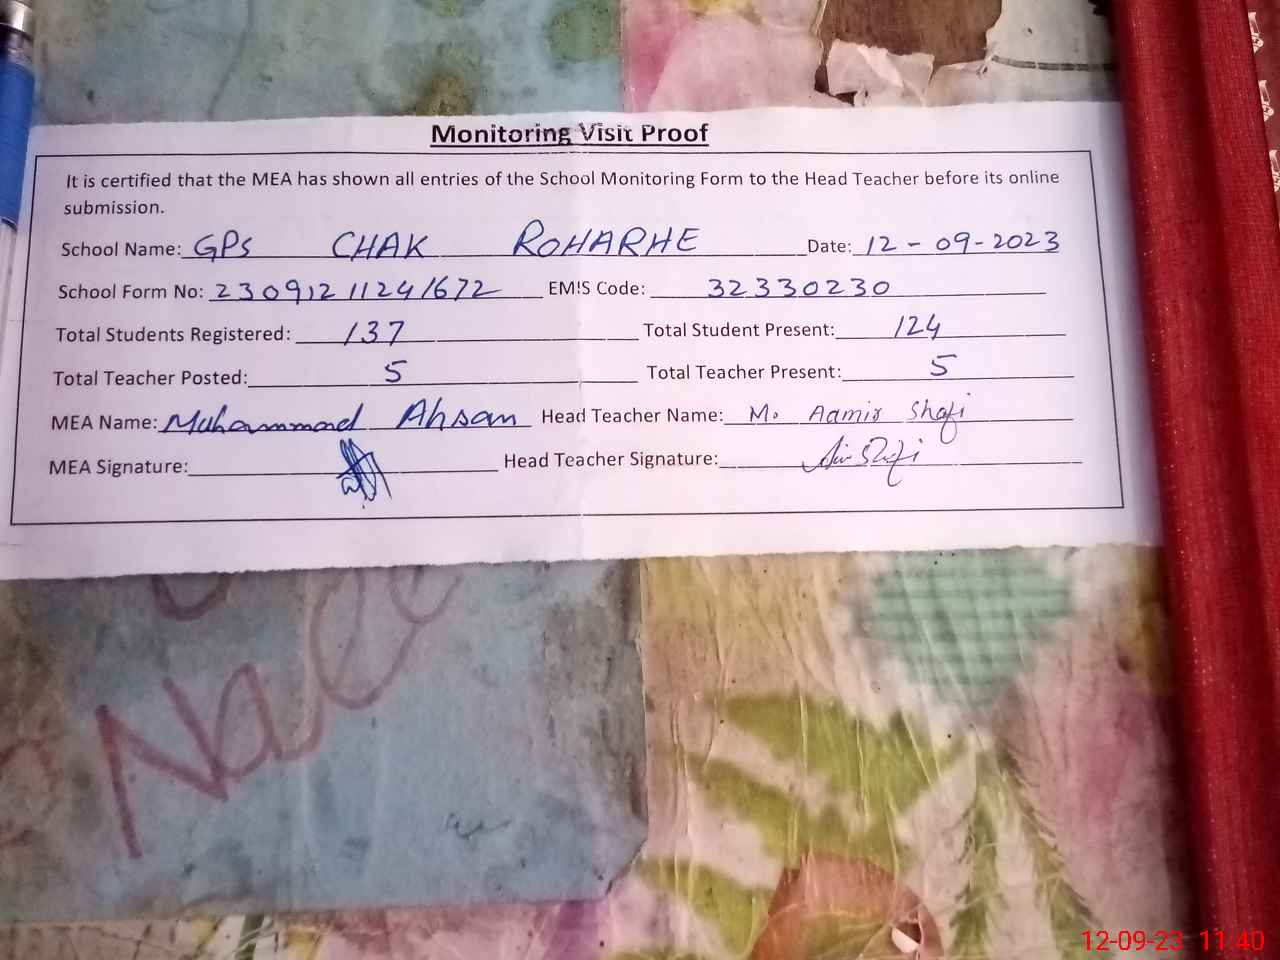 Monitoring Visit Proof
It is certified that the MEA has shown all entries of the School Monitoring Form to the Head Teacher before its online
submission.
School Name: GPS CHAK ROHARHE Date: 12-09-2023
School Form No: 230912 11241672 EMIS Code: 32330230
Total Students Registered: 137 Total Student Present: 124
Total Teacher Posted: 5 Total Teacher Present: 5
MEA Name: Muhammad Ahsan Head Teacher Name: M. Aamir Shafi
MEA Signature: Head Teacher Signature:
12-09-23 11:40